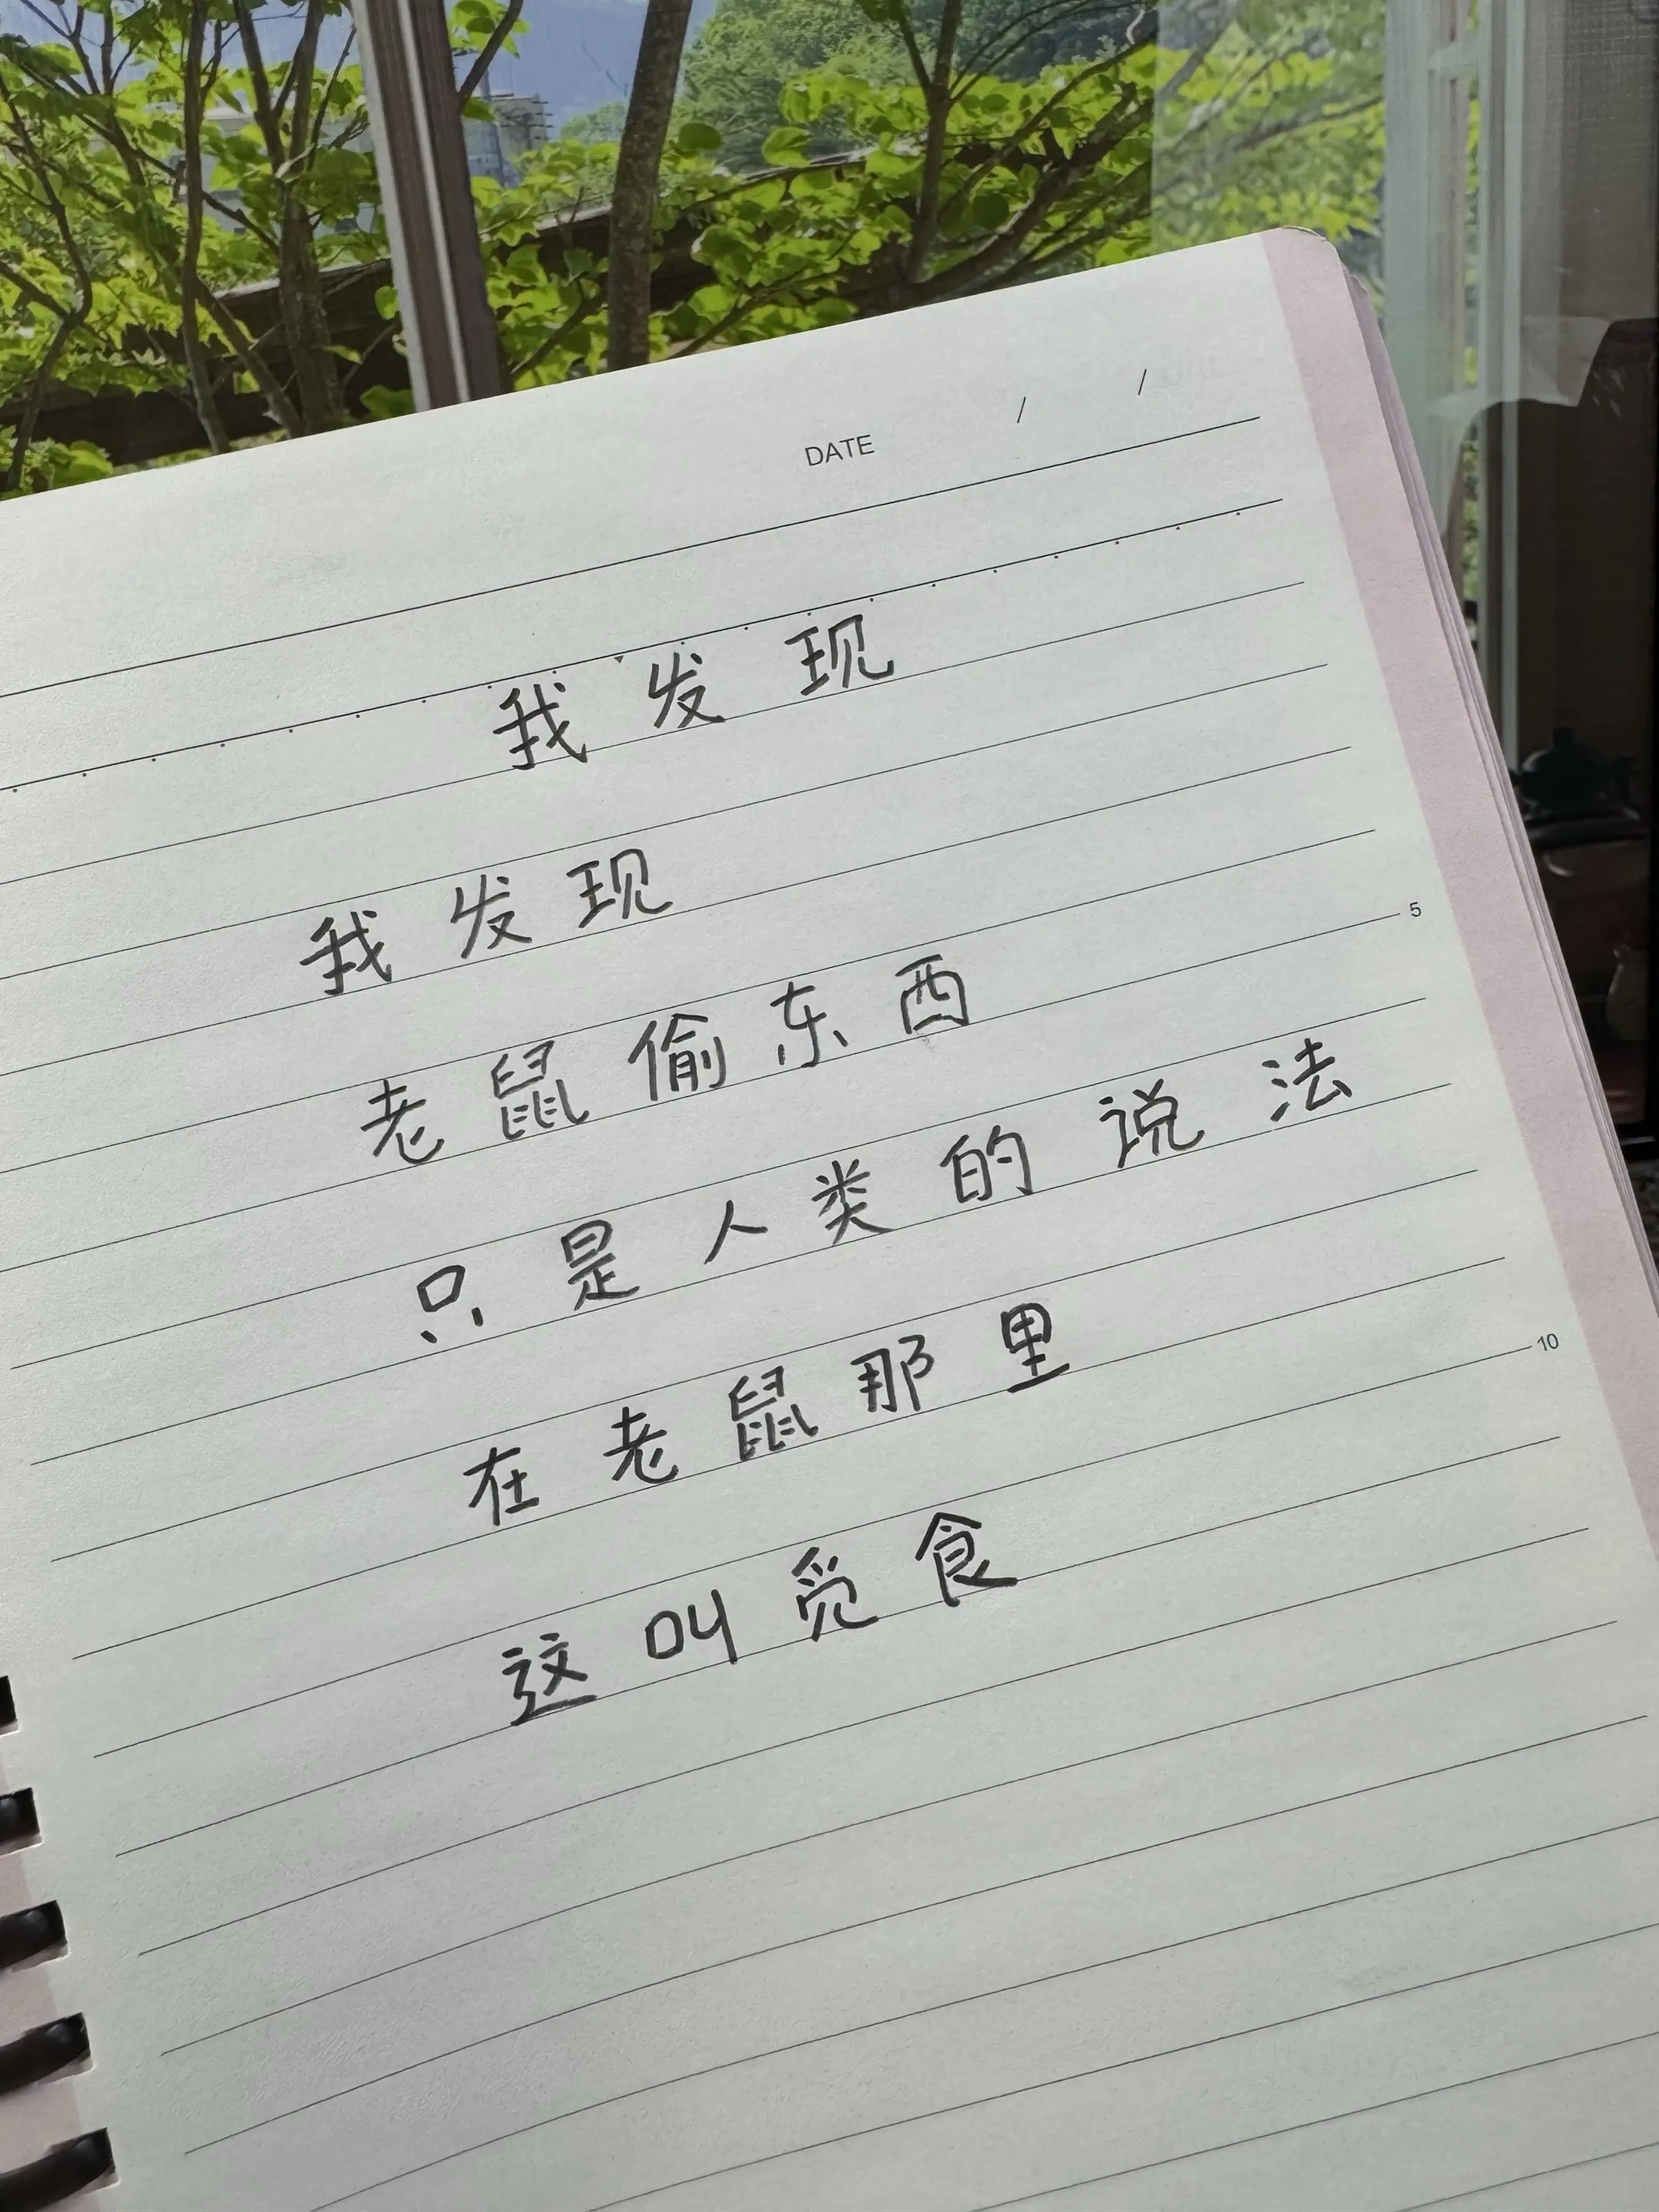 DATE / /
我发现
我发现
老鼠偷东西
只是人类的说法
在老鼠那里
这叫觅食
5
10